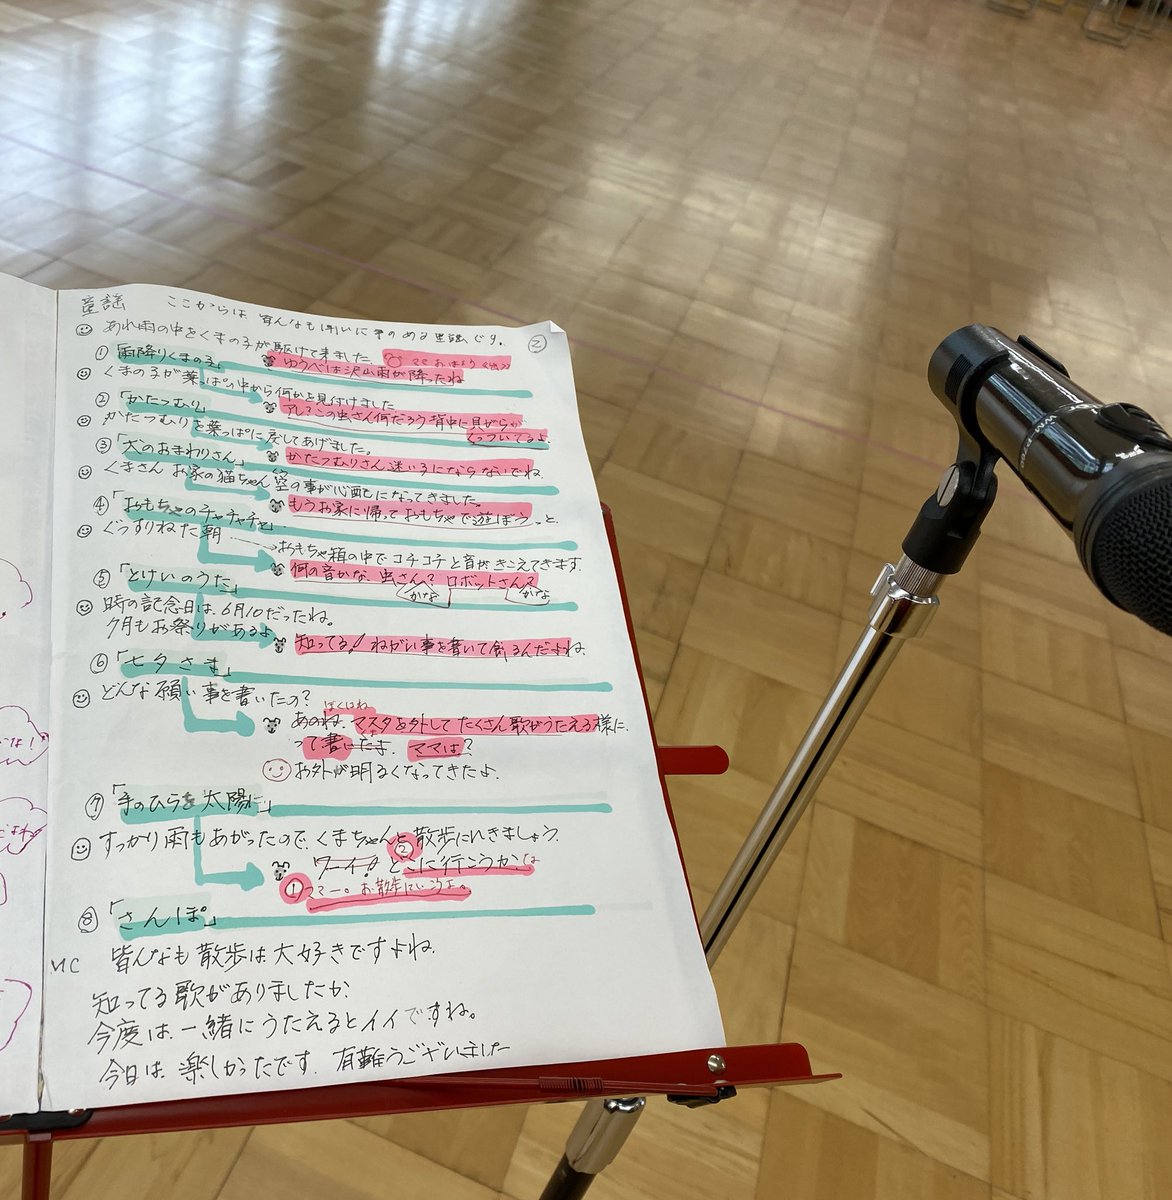 童謡 ここからは 皆んなも
②
あれ雨の中をくまの子が駆けて来ました
① 「雨降りくまの子」 ゆうべは沢山雨が降ったね
くまの子が葉っぱの中から何かを見付けました
② 「かたつむり」 アレ?この虫さん何だろう背中に貝がらが
くっついてるよ
かたつむりを葉っぱに戻してあげました。
③ 「犬のおまわりさん」 かたつむりさん迷い子にならないでね
くまさん お家の猫ちゃん の事が心配になってきました。
④ 「おもちゃのチャチャチャ」 もうお家に帰っておもちゃで遊ぼうっと。
ぐっすりねた朝 → おもちゃ箱の中でコチコチと音がきこえてきます。
何の音かな 虫さん? ロボットさん?
かな かな
⑤ 「とけいのうた」
時の記念日は、6月10だったね。
7月もお祭りがあるよ 知ってる! ねがい事を書いて飾るんだよね
⑥ 「七夕さま」
どんな願い事を書いたの?
ぼくはね
あのね マスクを外してたくさん歌がうたえる様に
って書いた ママは?
お外が明るくなってきたよ
⑦ 「手のひらを太陽に」
すっかり雨もあがったので、くまちゃんと散歩にいきましょう
② ワーイ! どこに行こうか
①
⑧ 「さんぽ」
MC 皆んなも散歩は大好きですよね
知ってる歌がありましたか
今度は一緒にうたえるとイイですね。
今日は楽しかったです 有難うございました